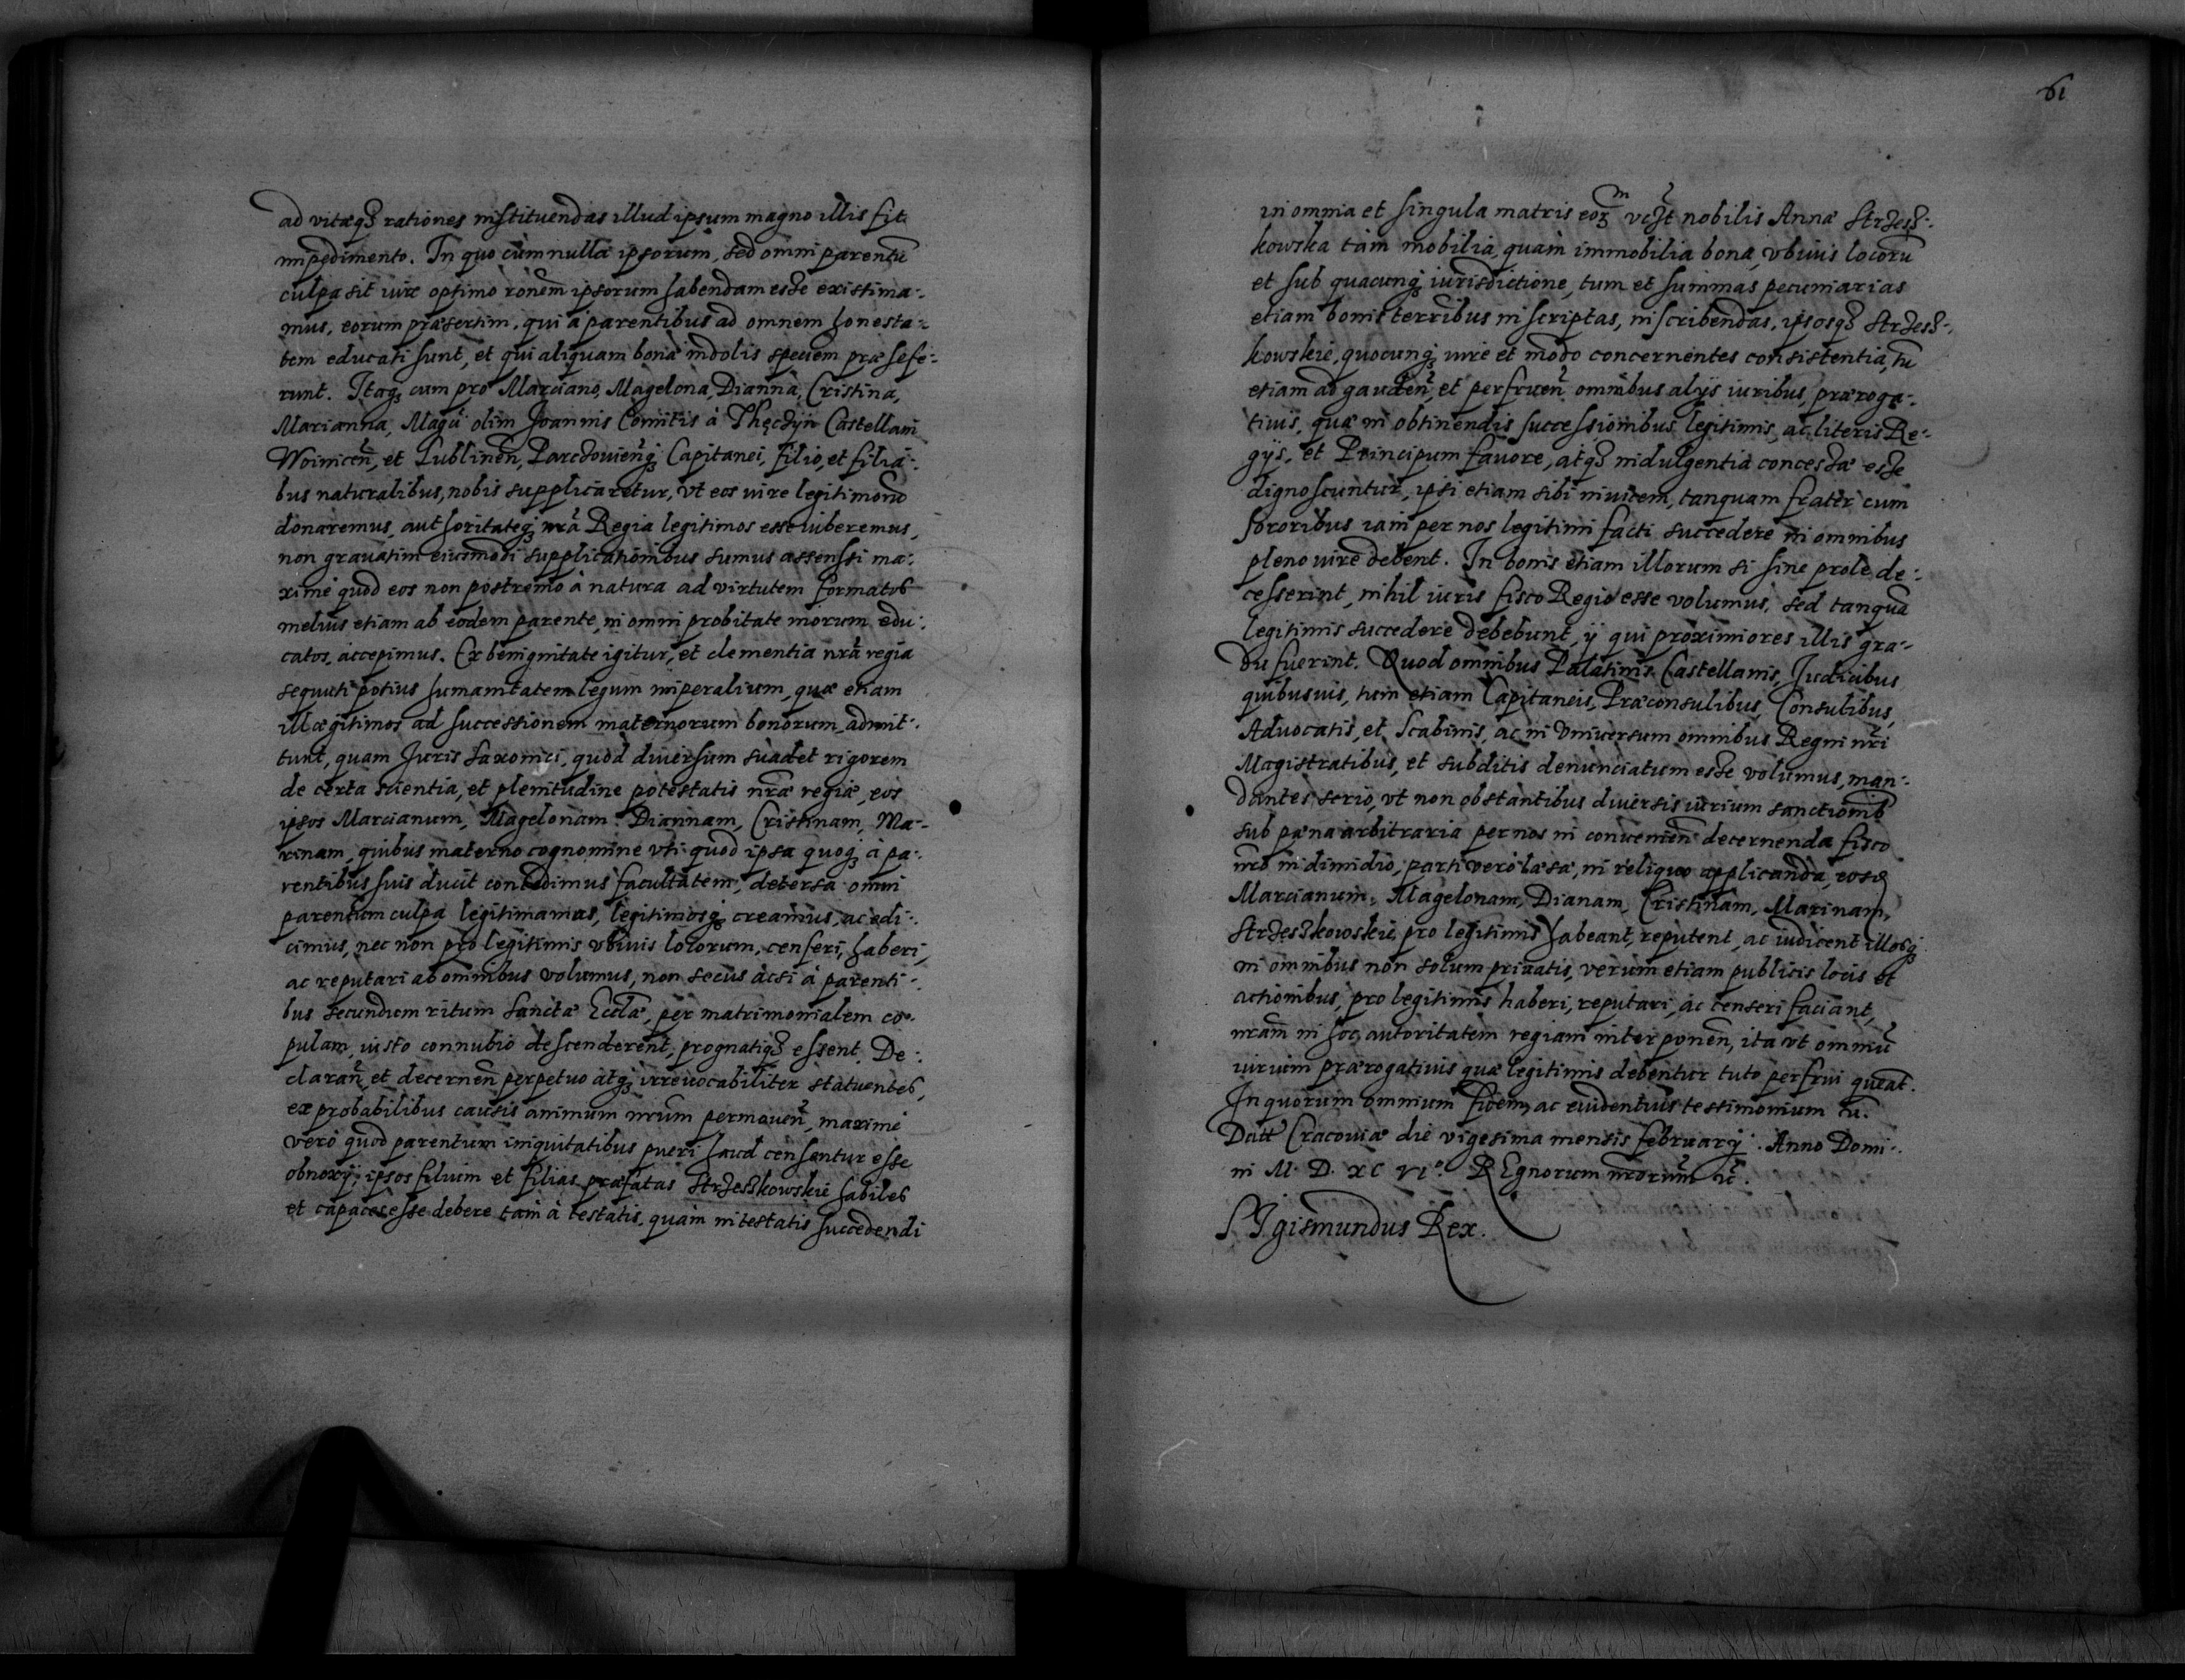 ad vitæq₃ rationes instituendas illud ipsum magno illis fit
impedimento. In quo cùm nulla ipsorum, sed omni parentū
culpa sit iure optimo rōnem ipsorum habendam esse existima-
mus, eorum præsertim, qui à parentibus ad omnem honesta-
tem educati sunt, et qui aliquam bonæ indolis speciem præ sefe-
runt. Itaq₃ cum pro Marciano, Magelona, Dianna, Cristina,
Marianna, Magci olim Joannis Comitis à Thęczÿn Castellani
Woinicen̄, et Lublinen̄, Parczovien̄q₃ Capitanei, filio, et filia-
bus naturalibus, nobis supplicaretur, vt eos iure legitimorū
donaremus, authoritateq₃ nrā Regia legitimos esse iuberemus,
non gravatim eiusmodi supplicationibus sumus assensi ma-
ximè quod eos non postremò à natura ad virtutem formatos
melius etiam ab eodem parente, in omni probitate morum edu-
catos, accepimus. Ex benignitate igitur, et clementia nrā regia
sequuti potius humanitatem legum imperalium, quæ etiam
illægitimos ad successionem maternorum bonorum, admit-
tunt, quam Juris Saxonici, quod diuersum suadet rigorem
de certa scientia, et plenitudine potestatis nrǣ regiæ, eos
ipsos Marcianum, Magelonam, Diannam, Cristinam, Ma-
rinam, quibus materno cognomine vti quod ipsa quoq₃ à pa-
rentibus suis ducit concedimus facultatem, detersa omni
parentum culpa legitimamus, legitimosq₃ creamus, ac edi-
cimus, nec non pro legitimis vbiuis locorum, censeri, haberi,
ac reputari ab omnibus volumus, non secus ac si à parenti-
bus secundum ritum Sanctæ Ecclæ, per matrimonialem co-
pulam, iusto connubio descenderent, prognatiq₃ essent. De-
claran̄ et decernen̄ perpetuo atq₃ irreuocabiliter statuentes,
ex probabilibus causis animum nrūm permouen̄, maximè
verò quod parentum iniquitatibus pueri haud censentur esse
obnoxÿ: ipsos filium et filias præfatas Strzeszkowskie habiles
et capaces esse debere tàm à testatis, quàm intestatis succedendi
61
in omnia et singula matris eorm nobilis Annæ Strzesz-
kowska tàm mobilia, quàm immobilia bona, vbiuis locorū
et sub quacunq₃ iurisdictione, tum et summas pecuniarias
etiam bonis terribus inscriptas, inscribendas, ipsosq₃ Strzesz-
kowskie, quocunq₃ iure et modo concernentes consistentia, tū
etiam ad gauden̄, et perfruen̄ omnibus alÿs iuribus, præroga-
tiuis, quæ in obtinendis successionibus legitimis, ac literis Re-
gÿs, et Principum fauore, atq₃ indulgentia concessæ esse
dignoscuntur, ipsi etiam sibi inuicem, tanquam frater cum
sororibus iam per nos legitimi facti succedere in omnibus
pleno iure debent. In bonis etiam illorum si sine prole de-
cesserint, nihil iuris fisco Regio esse volumus, sed tanquā
legitimis succedere debebunt, ÿ qui proximiores illis gra-
du fuerint. Quod omnibus Palatinis, Castellanis, Judicibus
quibusuis, tum etiam Capitaneis, Præconsulibus, Consulibus,
Aduocatis, et Scabinis, ac in vniuersum omnibus Regni nrī
Magistratibus, et subditis denunciatum esse volumus, man-
dantes serio, vt non obstantibus diuersis iurium sanctionib
sub pæna arbitraria per nos in conuenien̄ decernenda fisco
nrō in dimidio, parti verò læsæ, in reliquo applicanda, eosd
Marcianum, Magelonam, Dianam, Cristinam, Marinam,
Strzeszkowskie, pro legitimis habeant, reputent, ac iudicent illosq₃
in omnibus non solum priuatis, verùm etiam publicis locis et
actionibus, pro legitimis haberi, reputari, ac censeri faciant,
nrām in hoc autoritatem regiam interponen̄, ita vt omniū
iurium prærogatiuis quæ legitimis debentur tuto perfrui queāt.
In quorum omnium fidem, ac euidentius testimonium etc̄.
Datt Cracouiæ die vigesima mensis februarÿ. Anno Domi-
ni M. D. XC VIº. REgnorum nrōrum etc̄.
SIgismundus Rex.